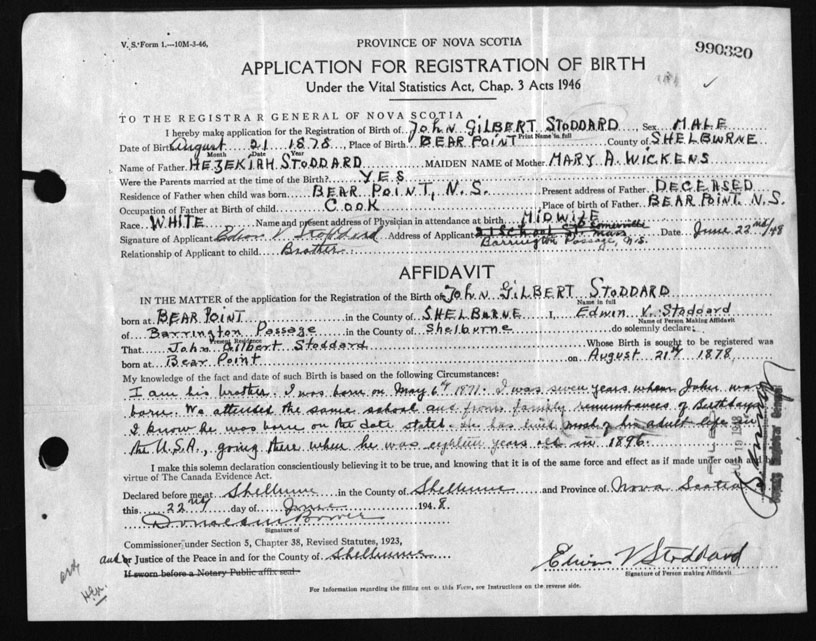 V. S. Form 1.—10M-3-46.
PROVINCE OF NOVA SCOTIA
990320
APPLICATION FOR REGISTRATION OF BIRTH
Under the Vital Statistics Act, Chap. 3 Acts 1946
TO THE REGISTRAR GENERAL OF NOVA SCOTIA
I hereby make application for the Registration of Birth of John GILBERT STODDARD Sex MALE
Print Name in full
Date of Birth August 21 1878, Place of Birth BEAR POINT County of SHELBURNE
Month Date Year
Name of Father HEZEKIAH STODDARD MAIDEN NAME of Mother MARY A. WICKENS
Were the Parents married at the time of the Birth? YES
Residence of Father when child was born BEAR POINT, N.S. Present address of Father DECEASED
Occupation of Father at Birth of child COOK Place of birth of Father BEAR POINT N.S.
Race WHITE Name and present address of Physician in attendance at birth MIDWIFE
Signature of Applicant Edwin V Stoddard Address of Applicant 21 School St Somerville Mass Date June 22nd/48
Barrington Passage, N.S.
Relationship of Applicant to child Brother
AFFIDAVIT
IN THE MATTER of the application for the Registration of the Birth of John GILBERT STODDARD
Name in full
born at BEAR POINT in the County of SHELBURNE I, Edwin V. Stoddard
Name of Person Making Affidavit
of Barrington Passage in the County of Shelburne do solemnly declare:
Present Residence
That John Gilbert Stoddard Whose Birth is sought to be registered was
born at Bear Point on August 21st 1878,
My knowledge of the fact and date of such Birth is based on the following Circumstances:
I am his brother. I was born on May 6th 1871. I was seven years when John was
born. We attended the same school and from family remembrances of Birthdays
I know he was born on the date stated. He has lived most of his adult life in
the U.S.A., going there when he was eighteen years old in 1896.
I make this solemn declaration conscientiously believing it to be true, and knowing that it is of the same force and effect as if made under oath and by
virtue of The Canada Evidence Act.
Declared before me at Shelburne in the County of Shelburne and Province of Nova Scotia
this 22nd day of June 1948
Signature of
Commissioner under Section 5, Chapter 38, Revised Statutes, 1923,
and or Justice of the Peace in and for the County of Shelburne
Edwin V Stoddard
If sworn before a Notary Public affix seal.
Signature of Person making Affidavit.
For Information regarding the filling out of this Form, see Instructions on the reverse side.